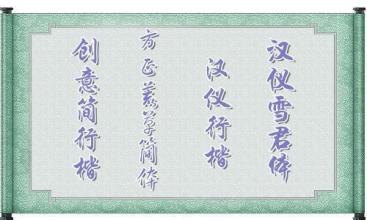 汉仪雪君体
汉仪行楷
方正黄草简体
创意简行楷